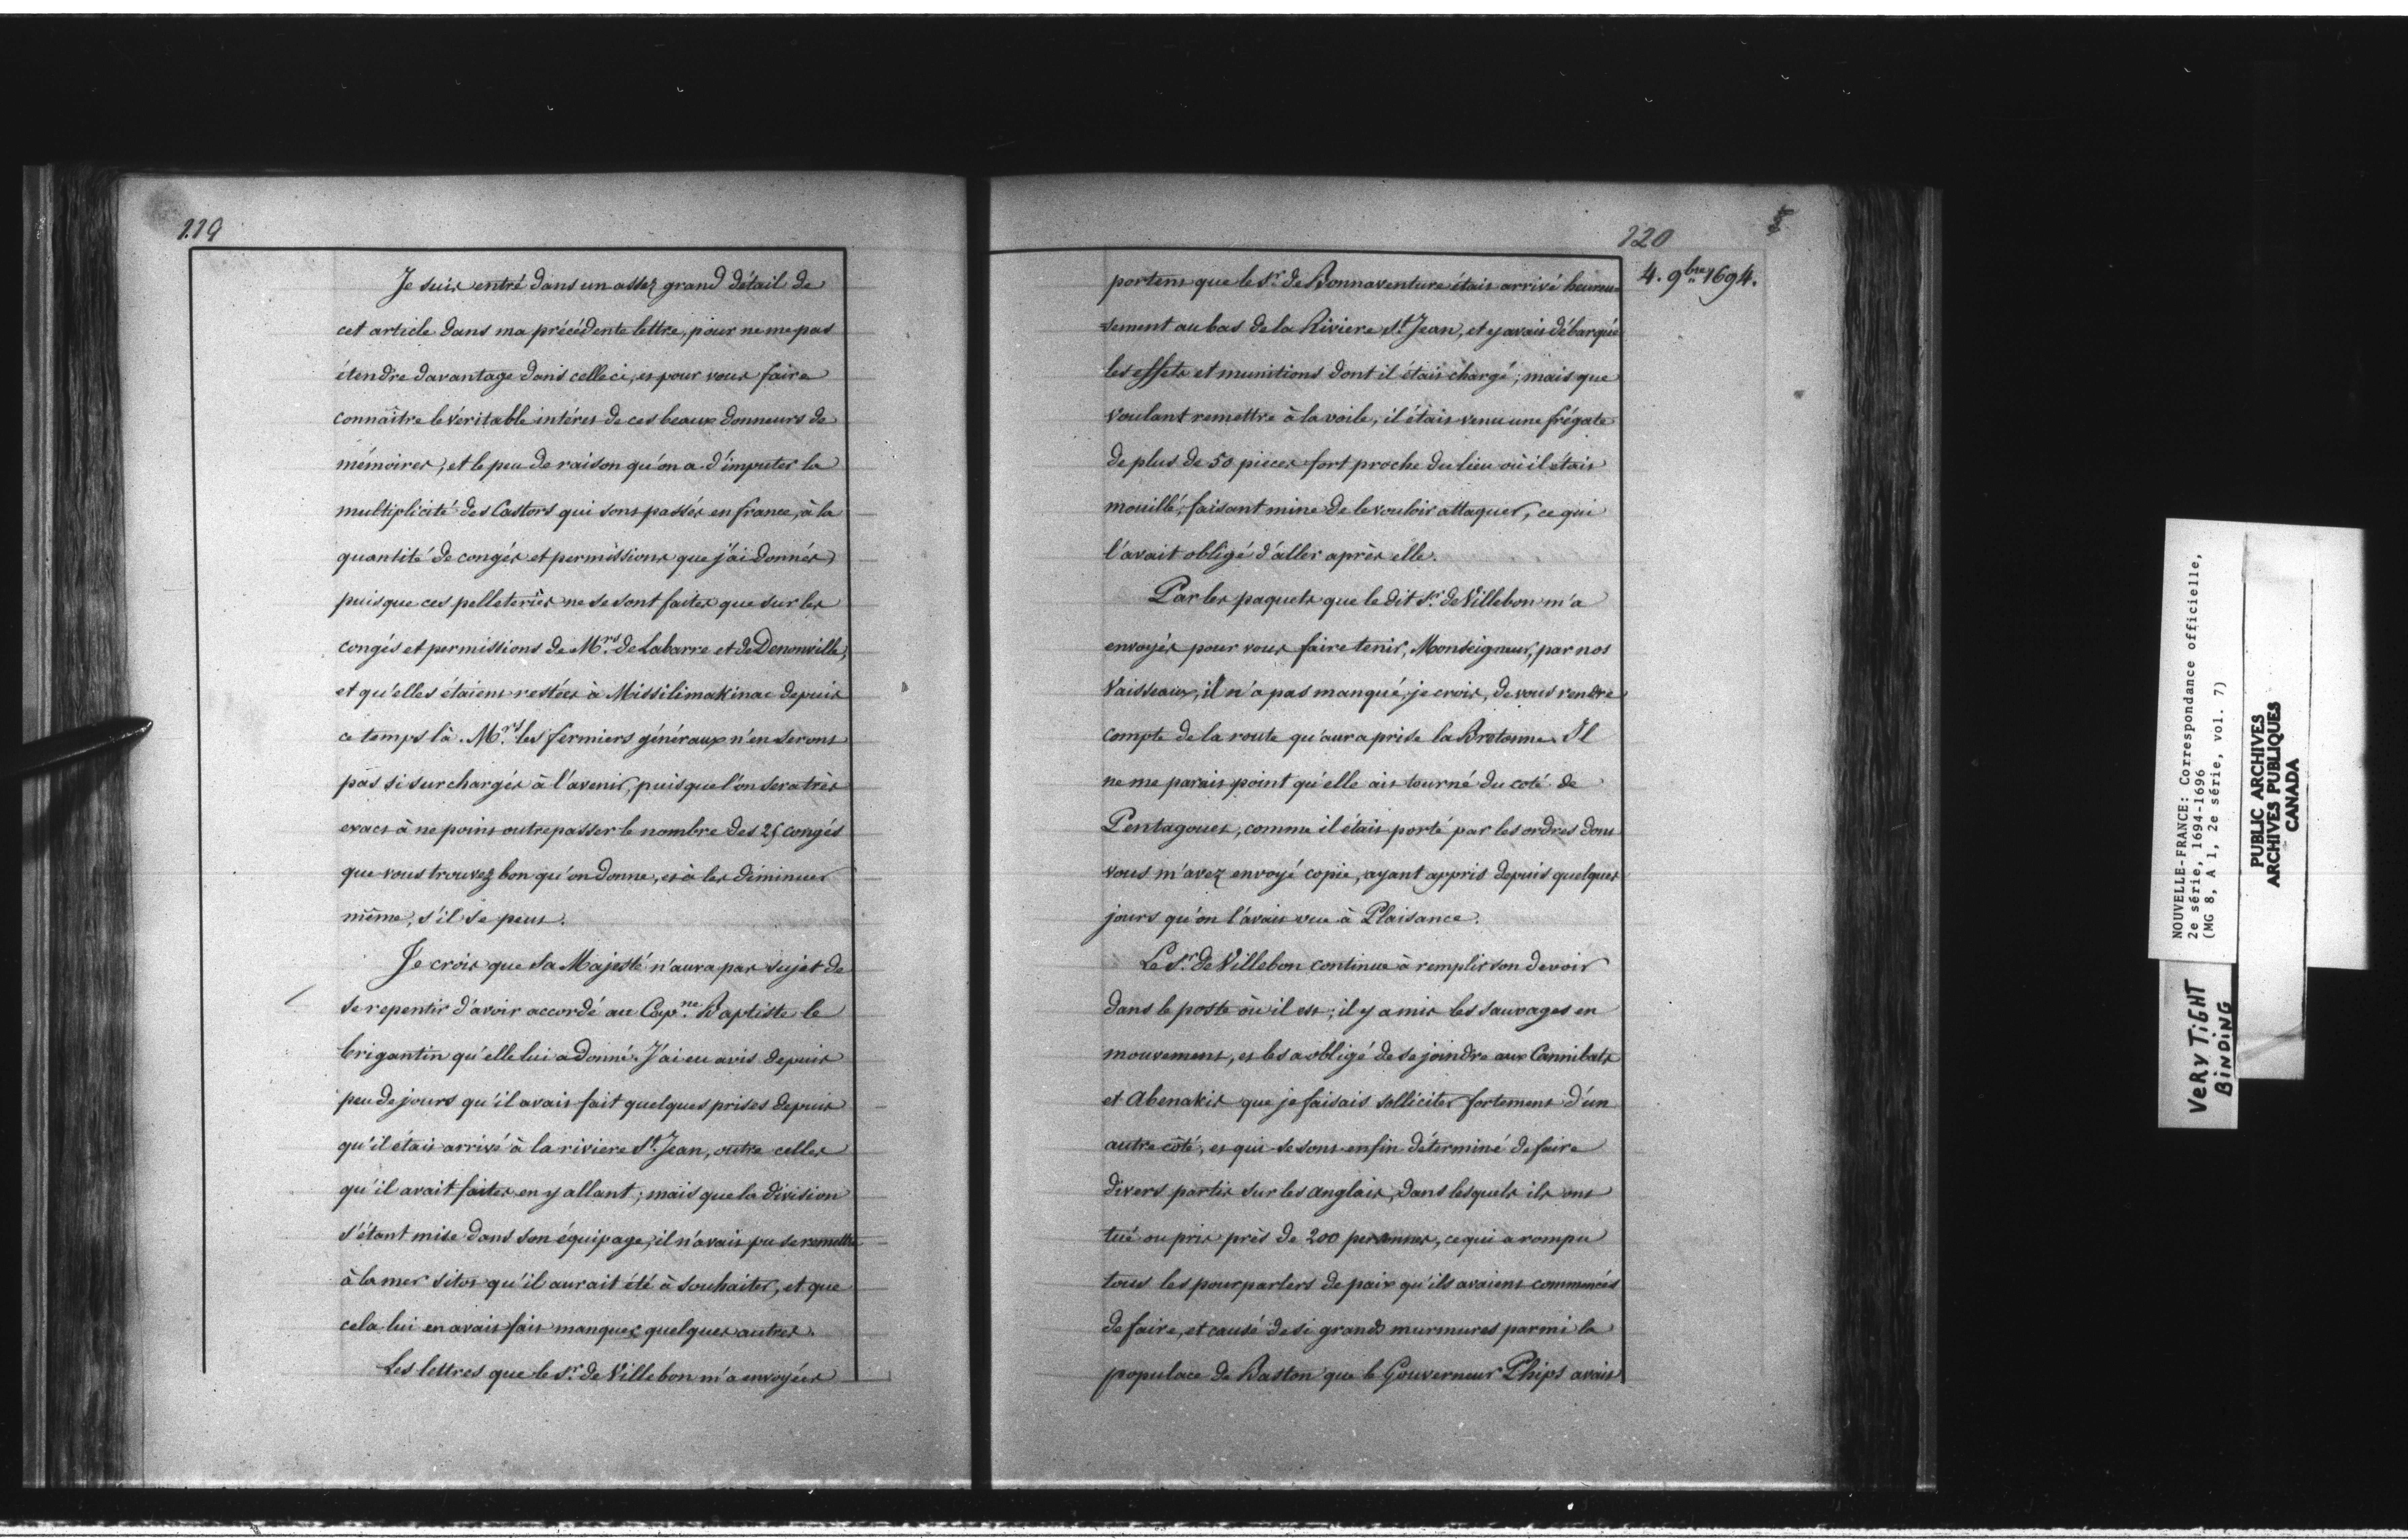 119
Je suis entré dans un assez grand détail de
cet article dans ma précédente lettre, pour ne me pas
étendre davantage dans celle ci, et pour vous faire
connaître le véritable intérêt de ces beaux donneurs de
mémoires, et le peu de raison qu'on a d'imputer la
multiplicité des Castors qui sont passés en france, à la
quantité de congés et permissions que j'ai donnés,
puisque ces pelleteries ne se sont faites que sur les
congés et permissions de Mrs. de Labarre et de Denonville,
et qu'elles étaient restées à Missilimakinac depuis
ce temps là. Mrs. les fermiers généraux n'en seront
pas si surchargés à l'avenir, puisque l'on sera très
exact à ne point outrepasser le nombre des 25 congés
que vous trouvez bon qu'on donne, et à les diminuer
même, s'il se peut.
Je crois que sa Majesté n'aura pas sujet de
se repentir d'avoir accordé au Capne. Baptiste le
brigantin qu'elle lui a donné. J'ai eu avis depuis
peu de jours qu'il avait fait quelques prises depuis
qu'il était arrivé à la riviere St. Jean, outre celles
qu'il avait faites en y allant; mais que la division
s'étant mise dans son équipage, il n'avait pu se remettre
à la mer sitot qu'il aurait été à souhaiter, et que
cela lui en avait fait manquer quelques autres.
Les lettres que le Sr. de Villebon m'a envoyées
120
4. 9bre 1694.
portent que le Sr. de Bonnaventure était arrivé heureu-
sement au bas de la Riviere St. Jean, et y avait débarqué
les effets et munitions dont il était chargé; mais que
voulant remettre à la voile, il était venu une frégate
de plus de 50 pieces fort proche du lieu où il était
mouillé, faisant mine de le vouloir attaquer, ce qui
l'avait obligé d'aller après elle.
Par les paquets que le dit Sr. de Villebon m'a
envoyés pour vous faire tenir, Monseigneur, par nos
Vaisseaux, il n'a pas manqué, je crois, de vous rendre
compte de la route qu'aura prise la Bretonne. Il
ne me parait point qu'elle ait tourné du coté de
Pentagouet, comme il était porté par les ordres dont
vous m'avez envoyé copie, ayant appris depuis quelques
jours qu'on l'avait vue à Plaisance.
Le Sr. de Villebon continue à remplir son devoir
dans le poste où il est; il y a mis les sauvages en
mouvement, et les a obligé de se joindre aux Cannibats
et Abenakis que je faisais solliciter fortement d'un
autre côté, et qui se sont enfin déterminé de faire
divers partis sur les anglais, dans lesquels ils ont
tué ou pris près de 200 personnes, ce qui a rompu
tous les pourparlers de paix qu'ils avaient commencés
de faire, et causé de si grands murmures parmi la
populace de Baston que le Gouverneur Phips avait
NOUVELLE-FRANCE: Correspondance officielle,
2e série, 1694-1696
(MG 8, A 1, 2e série, vol. 7)
PUBLIC ARCHIVES
ARCHIVES PUBLIQUES
CANADA
VERY TIGHT
BINDING